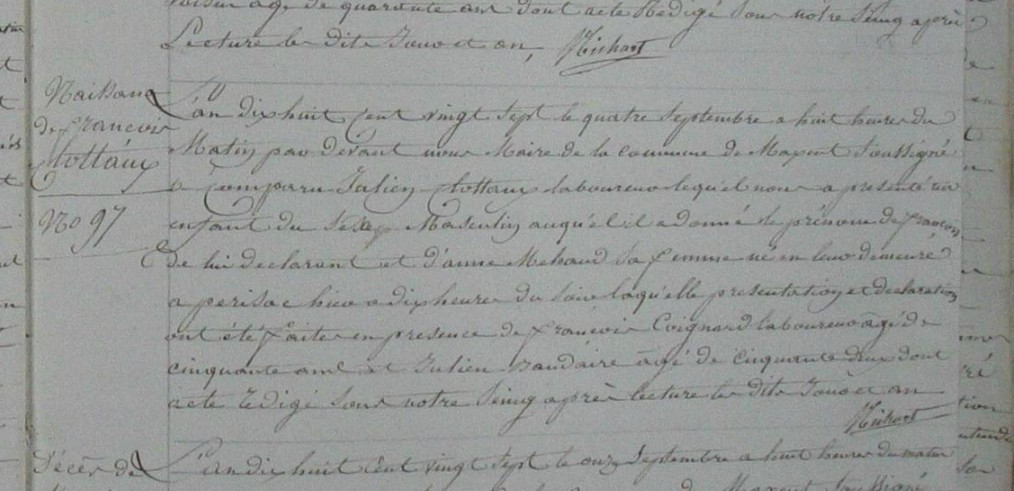 voisin agé de quarante ans dont acte Rédigé sous notre seing après
Lecture les dits Jour et an,
Naissance
de francois
Cottaux
No 97
L'an dix huit Cent vingt Sept le quatre Septembre a huit heures du
Matin par devant nous Maire de la Commune de Maxent Soussigné
a Comparu Julien Cottaux laboureur lequel nous a presenté un
enfant du Sexe Masculin auquel il a donné le prénom de francois
de lui declarant et d'anne Mehaud Sa femme né en leur demeure
a perisac hier a dix heures du Soir laquelle presentation et declaration
ont été faites en presence de francois Coignard laboureur âgé de
cinquante ans et Julien âgé de cinquante deux dont
acte Rédigé Sous notre Seing après lecture les dits Jour et an
Décès de
L'an dix huit Cent vingt Sept le onze Septembre a huit heures du matin
de Maxent Soussigné